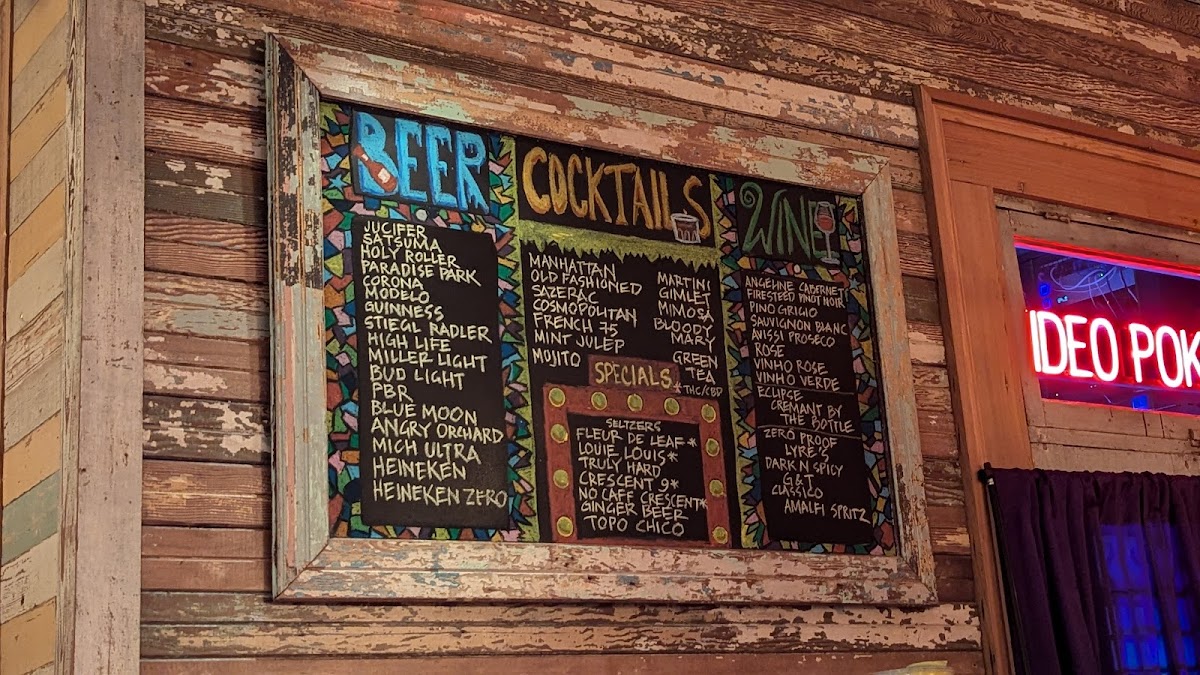 BEER
JUCIFER
SATSUMA
HOLY ROLLER
PARADISE PARK
CORONA
MODELO
GUINNESS
STIEGL RADLER
HIGH LIFE
MILLER LIGHT
BUD LIGHT
PBR
BLUE MOON
ANGRY ORCHARD
MICH ULTRA
HEINEKEN
HEINEKEN ZERO
COCKTAILS
MANHATTAN
OLD FASHIONED
SAZERAC
COSMOPOLITAN
FRENCH 75
MINT JULEP
MOJITO
MARTINI
GIMLET
MIMOSA
BLOODY
MARY
GREEN
TEA
*THC/CBD
SPECIALS
SELTZERS
FLEUR DE LEAF*
LOUIE LOUIS*
TRULY HARD
CRESCENT 9*
NO CAFE CRESCENT*
GINGER BEER
TOPO CHICO
WINE
ANGELINE CABERNET
FIRESTEED PINOT NOIR
PINO GRIGIO
SAUVIGNON BLANC
AVISSI PROSECO
ROSE
VINHO ROSE
VINHO VERDE
ECLIPSE
CREMANT BY
THE BOTTLE
ZERO PROOF
LYRE'S
DARK N SPICY
G&T
CLASSICO
AMALFI SPRITZ
IDEO POK